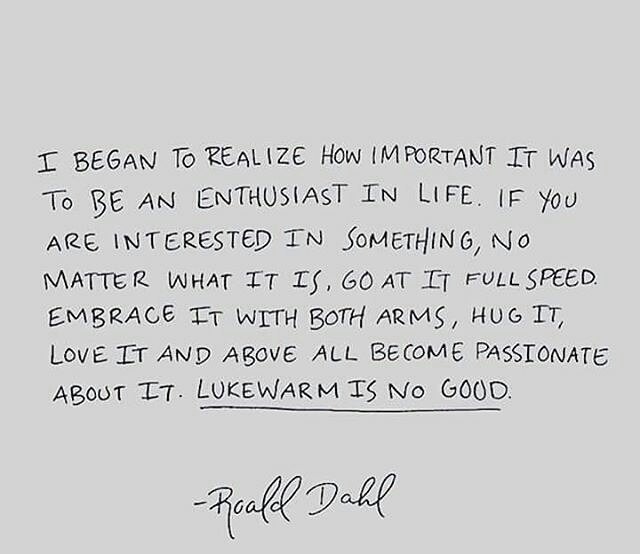 I BEGAN TO REALIZE HOW IMPORTANT IT WAS
TO BE AN ENTHUSIAST IN LIFE. IF YOU
ARE INTERESTED IN SOMETHING, NO
MATTER WHAT IT IS, GO AT IT FULL SPEED.
EMBRACE IT WITH BOTH ARMS, HUG IT,
LOVE IT AND ABOVE ALL BECOME PASSIONATE
ABOUT IT. LUKEWARM IS NO GOOD.
-Roald Dahl